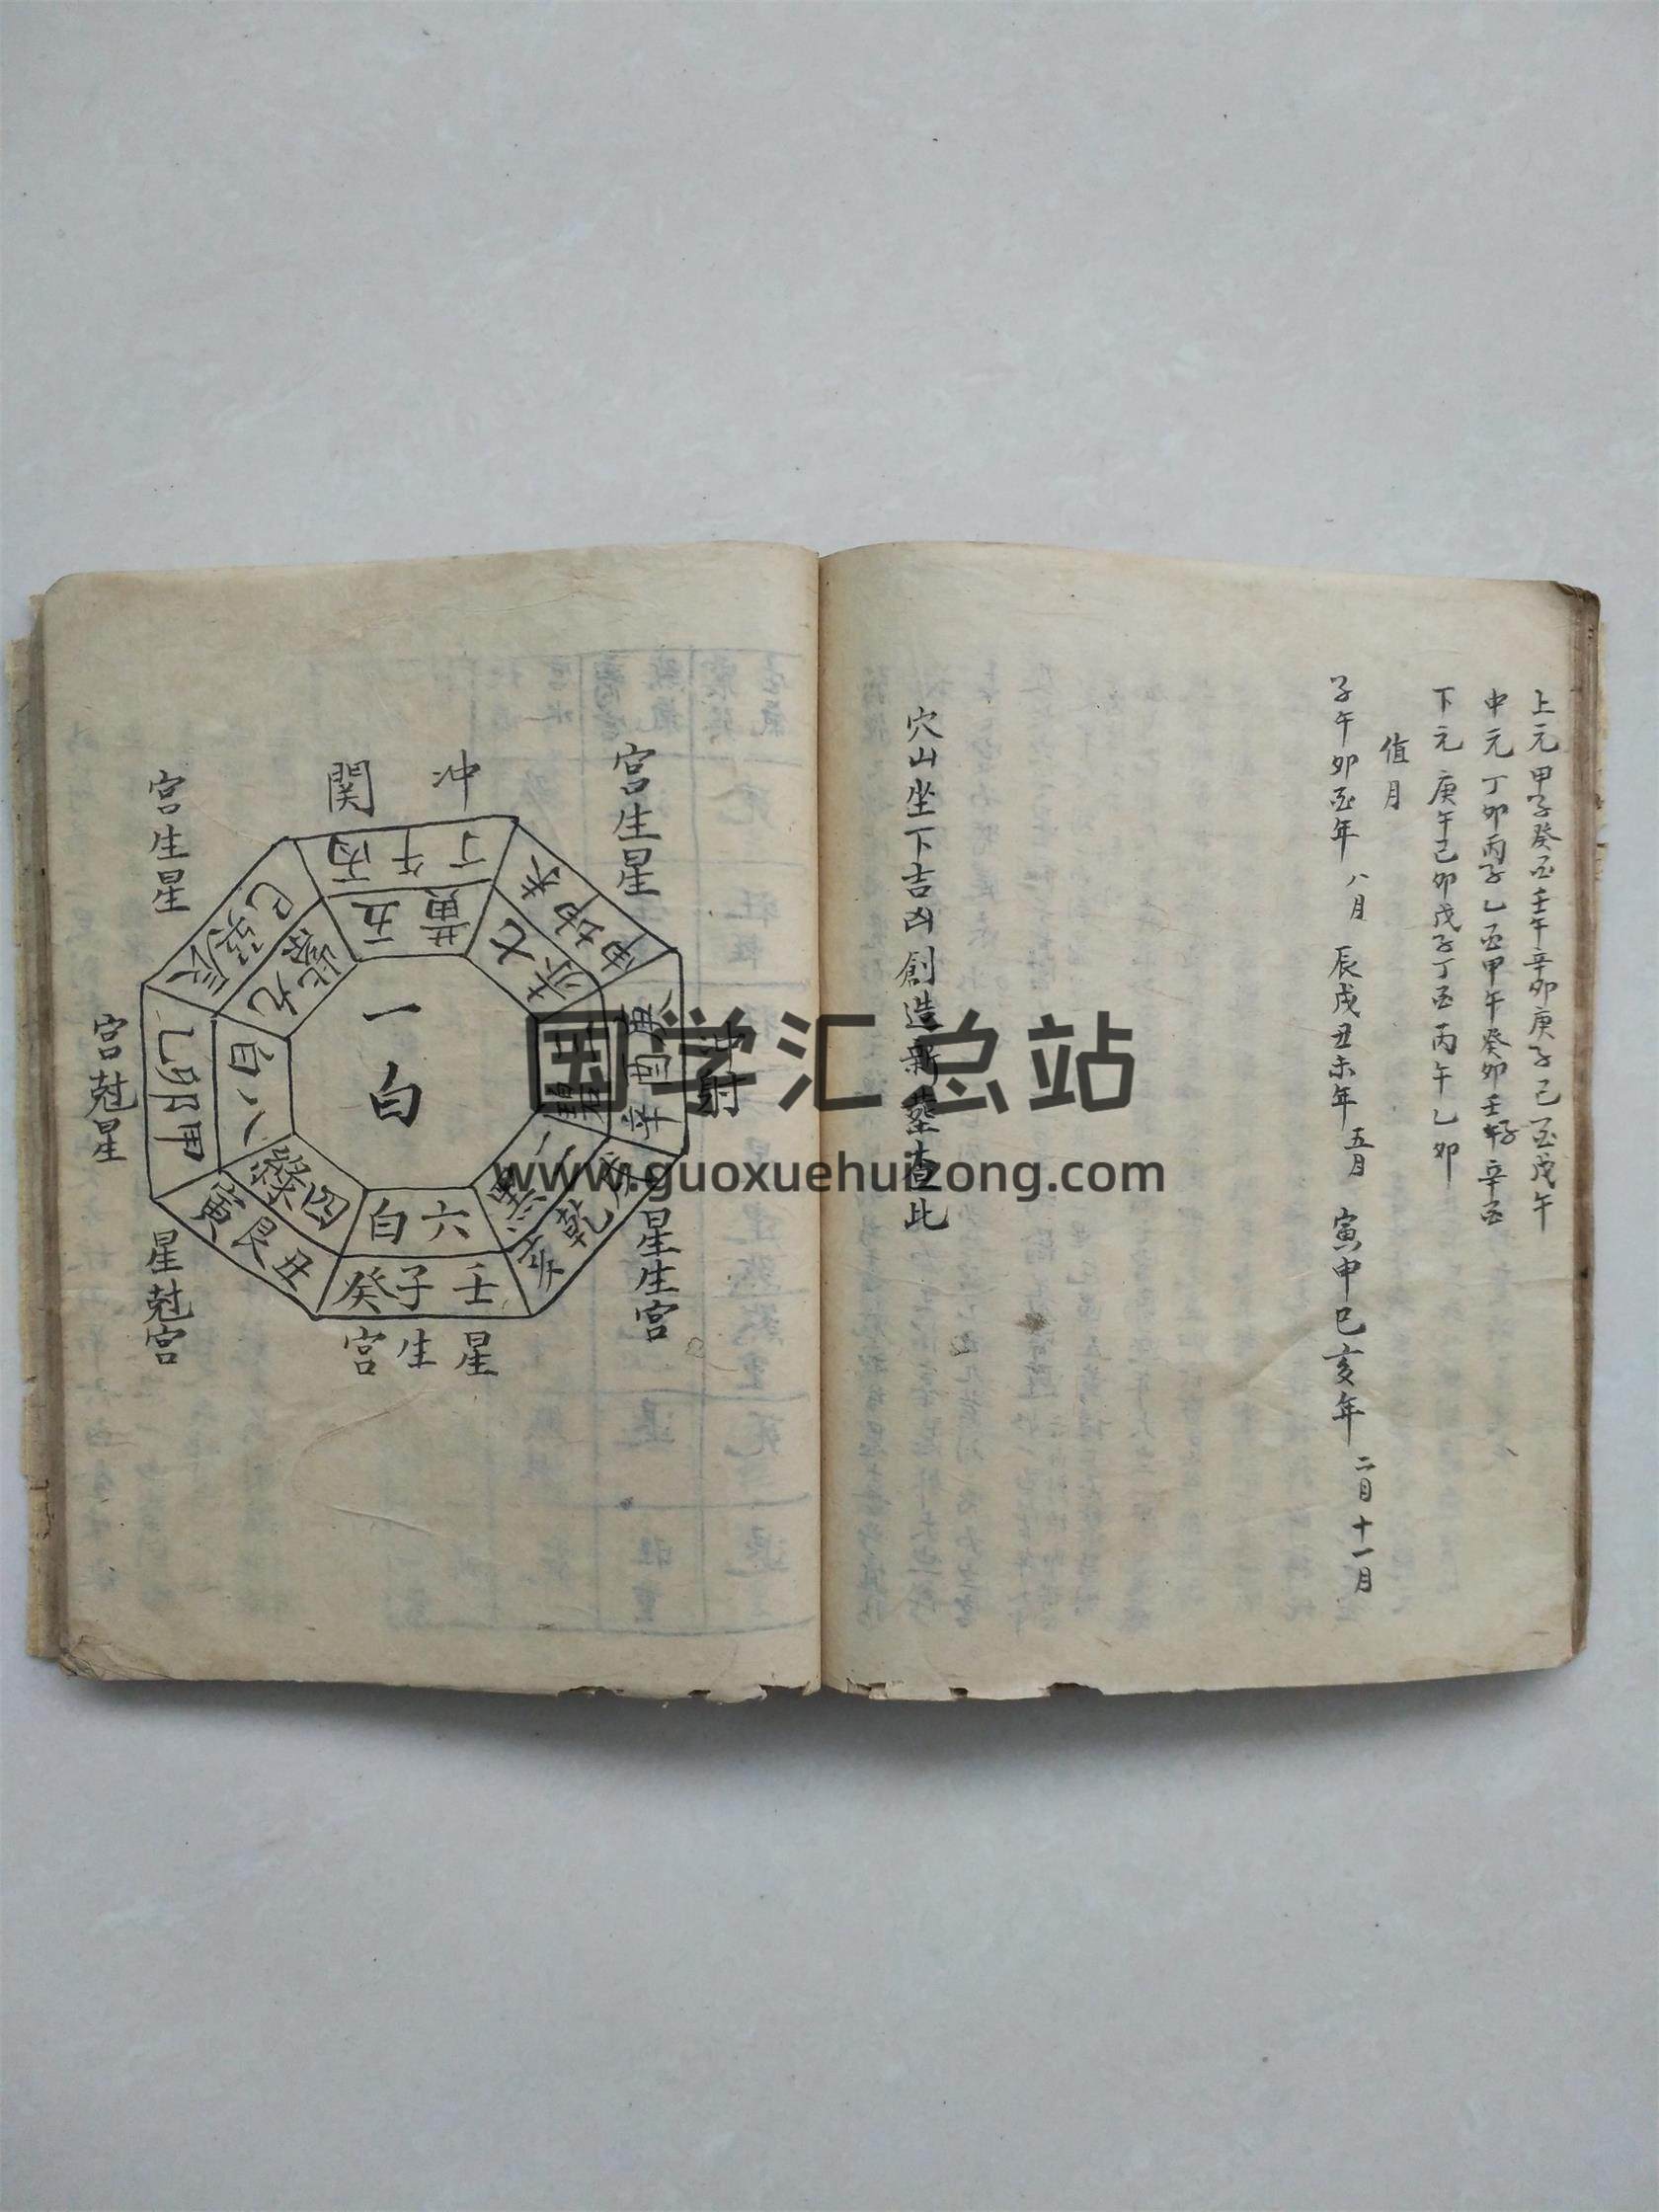 上元 甲子癸酉壬午辛卯庚子己酉戊午
中元 丁卯丙子乙酉甲午癸卯壬子辛酉
下元 庚午己卯戊子丁酉丙午乙卯
值月
子午卯酉年 八月 辰戌丑未年 五月 寅申巳亥年 二月 十一月
穴山坐下吉凶創造新塟查此
宮生星
冲關
宮生星
宮尅星
星尅宮
星生宮
星生宮
丁午丙
五黄
未坤申
七赤
庚酉辛
三碧
乾
二黑
壬子癸
六白
丑艮寅
四綠
甲卯乙
八白
辰巽巳
九紫
一白
国学汇总站
www.guoxuehuizong.com